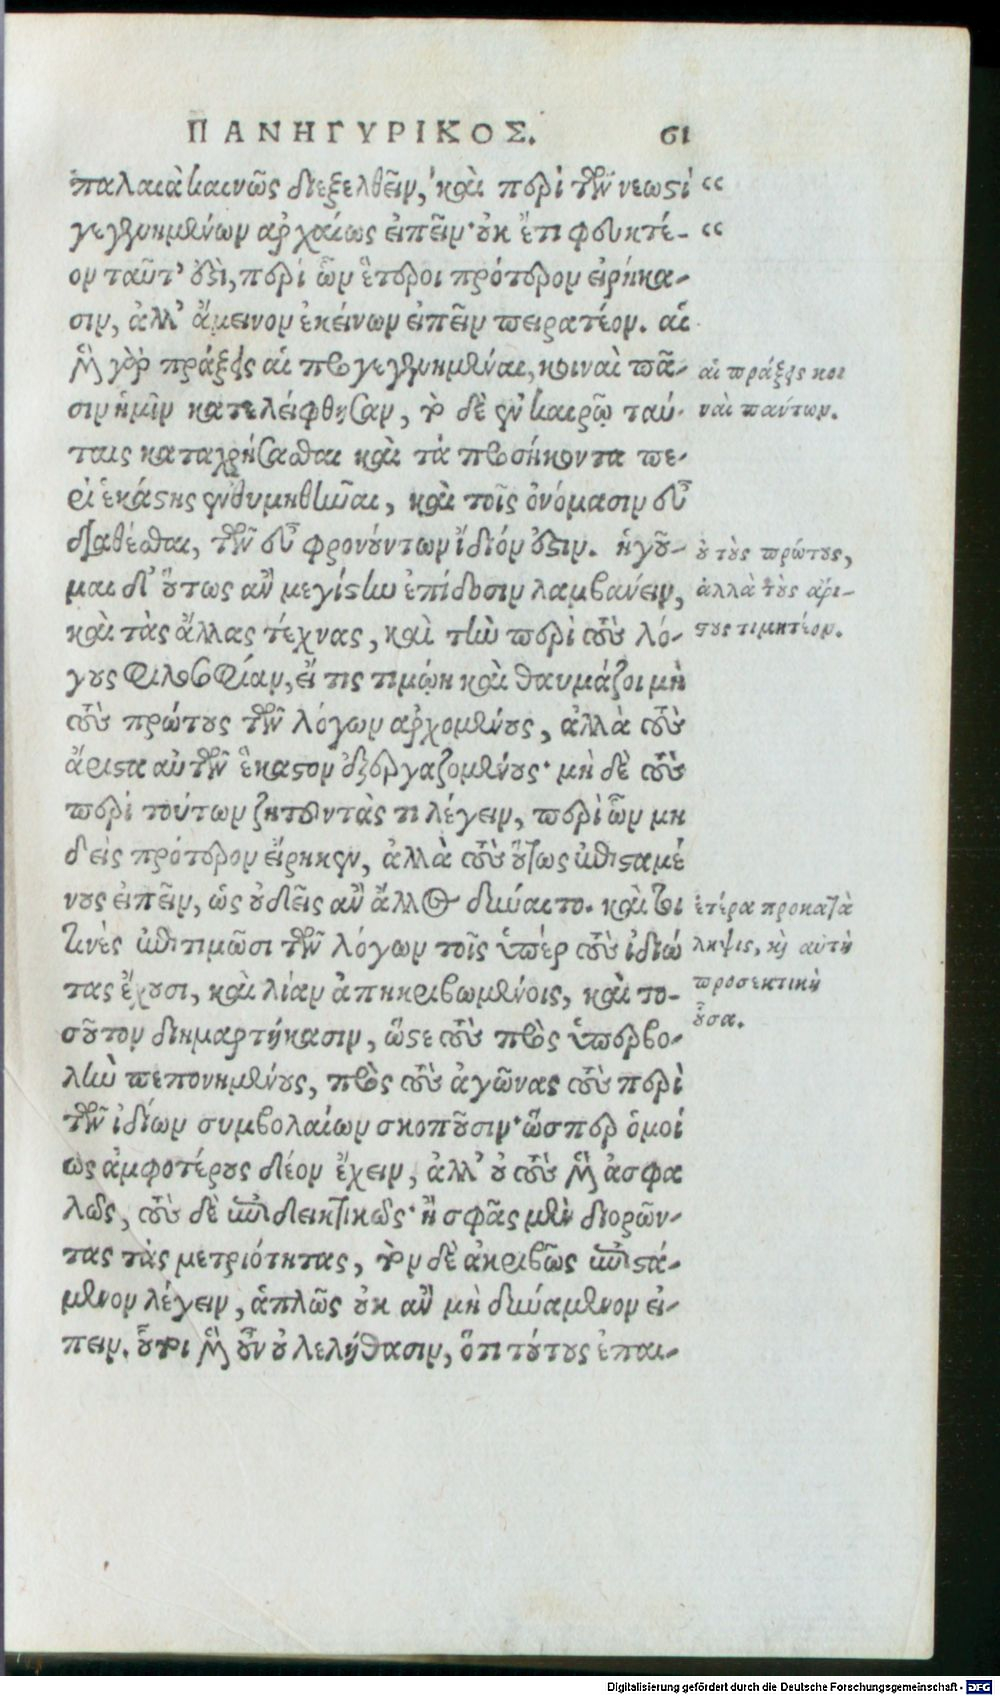 ΠΑΝΗΓΥΡΙΚΟΣ. 61
παλαιὰ καινῶς διεξελθεῖν, καὶ περὶ τῶν νεωστὶ “
γεγενημένων ἀρχαίως εἰπεῖν· οὐκ ἔτι φευκτέ- “
ον ταῦτ’ ἐστὶ, περὶ ὧν ἕτεροι πρότερον εἰρήκα-
σιν, ἀλλ’ ἄμεινον ἐκείνων εἰπεῖν πειρατέον. αἱ
μὲν γὰρ πράξεις αἱ προγεγενημέναι, κοιναὶ πᾶ-
σιν ἡμῖν κατελείφθησαν, τὸ δὲ ἐν καιρῷ ταύ-
ταις καταχρήσασθαι καὶ τὰ προσήκοντα πε-
ρὶ ἑκάστης ἐνθυμηθῆναι, καὶ τοῖς ὀνόμασιν εὖ
διαθέσθαι, τῶν εὖ φρονούντων ἴδιόν ἐστιν. ἡγοῦ-
μαι δ’ οὕτως ἂν μεγίστην ἐπίδοσιν λαμβάνειν,
καὶ τὰς ἄλλας τέχνας, καὶ τὴν περὶ τοὺς λό-
γους φιλοσοφίαν, εἴ τις τιμῴη καὶ θαυμάζοι μὴ
τοὺς πρώτους τῶν λόγων ἀρχομένους, ἀλλὰ τοὺς
ἄριστα αὐτῶν ἕκαστον ἐξεργαζομένους· μὴ δὲ τοὺς
περὶ τούτων ζητοῦντάς τι λέγειν, περὶ ὧν μη
δεὶς πρότερον εἴρηκεν, ἀλλὰ τοὺς οὕτως ἐπισταμέ
νους εἰπεῖν, ὡς οὐδεὶς ἂν ἄλλος δύναιτο. καὶ τοι
τινὲς ἐπιτιμῶσι τῶν λόγων τοῖς ὑπὲρ τοὺς ἰδιώ
τας ἔχουσι, καὶ λίαν ἀπηκριβωμένοις, καὶ το-
σοῦτον διημαρτήκασιν, ὥστε τοὺς πρὸς ὑπερβο-
λὴν πεπονημένους, πρὸς τοὺς ἀγῶνας τοὺς περὶ
τῶν ἰδίων συμβολαίων σκοποῦσιν· ὥσπερ ὁμοί
ως ἀμφοτέρους δέον ἔχειν, ἀλλ’ οὐ τοὺς μὲν ἀσφα
λῶς, τοὺς δὲ ἐπιδεικτικῶς· ἢ σφᾶς μὲν διορῶν-
τας τὰς μετριότητας, τὸν δὲ ἀκριβῶς ἐπιστά-
μενον λέγειν, ἁπλῶς οὐκ ἂν μὴ δυνάμενον εἰ-
πειν. οὗτοι μὲν οὖν οὐ λελήθασιν, ὅτι τούτους ἐπαι-
αἱ πράξεις κοι
ναὶ πάντων.
οὐ τοὺς πρώτους,
ἀλλὰ τοὺς ἀρί-
στους τιμητέον.
ἑτέρα προκατὰ
ληψις, καὶ αὐτὴ
προσεκτικὴ
οὖσα.
Digitalisierung gefördert durch die Deutsche Forschungsgemeinschaft - DFG